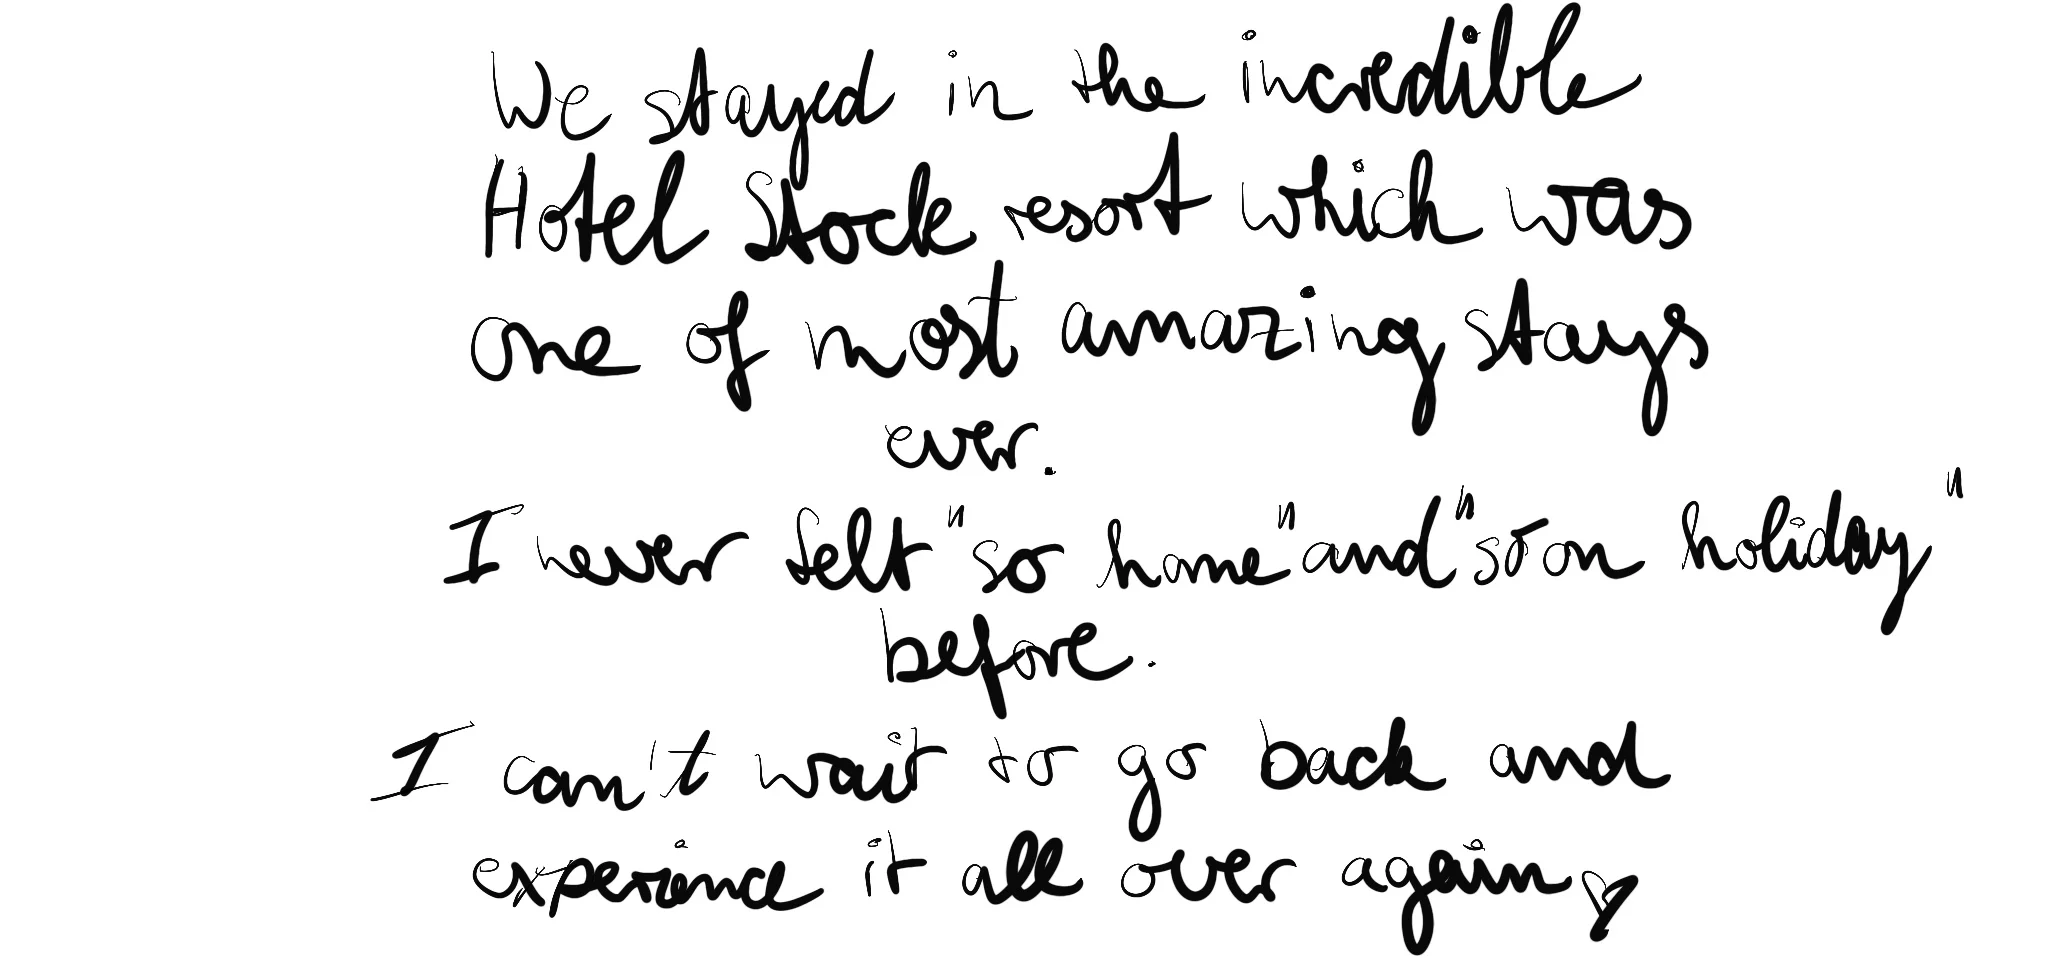 We stayed in the incredible
Hotel Stock resort which was
one of most amazing stays
ever.
I never felt "so home" and "so on holiday"
before.
I can't wait to go back and
experience it all over again ♡